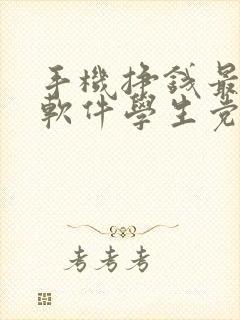 手機掙錢最
軟件學生党
考考考